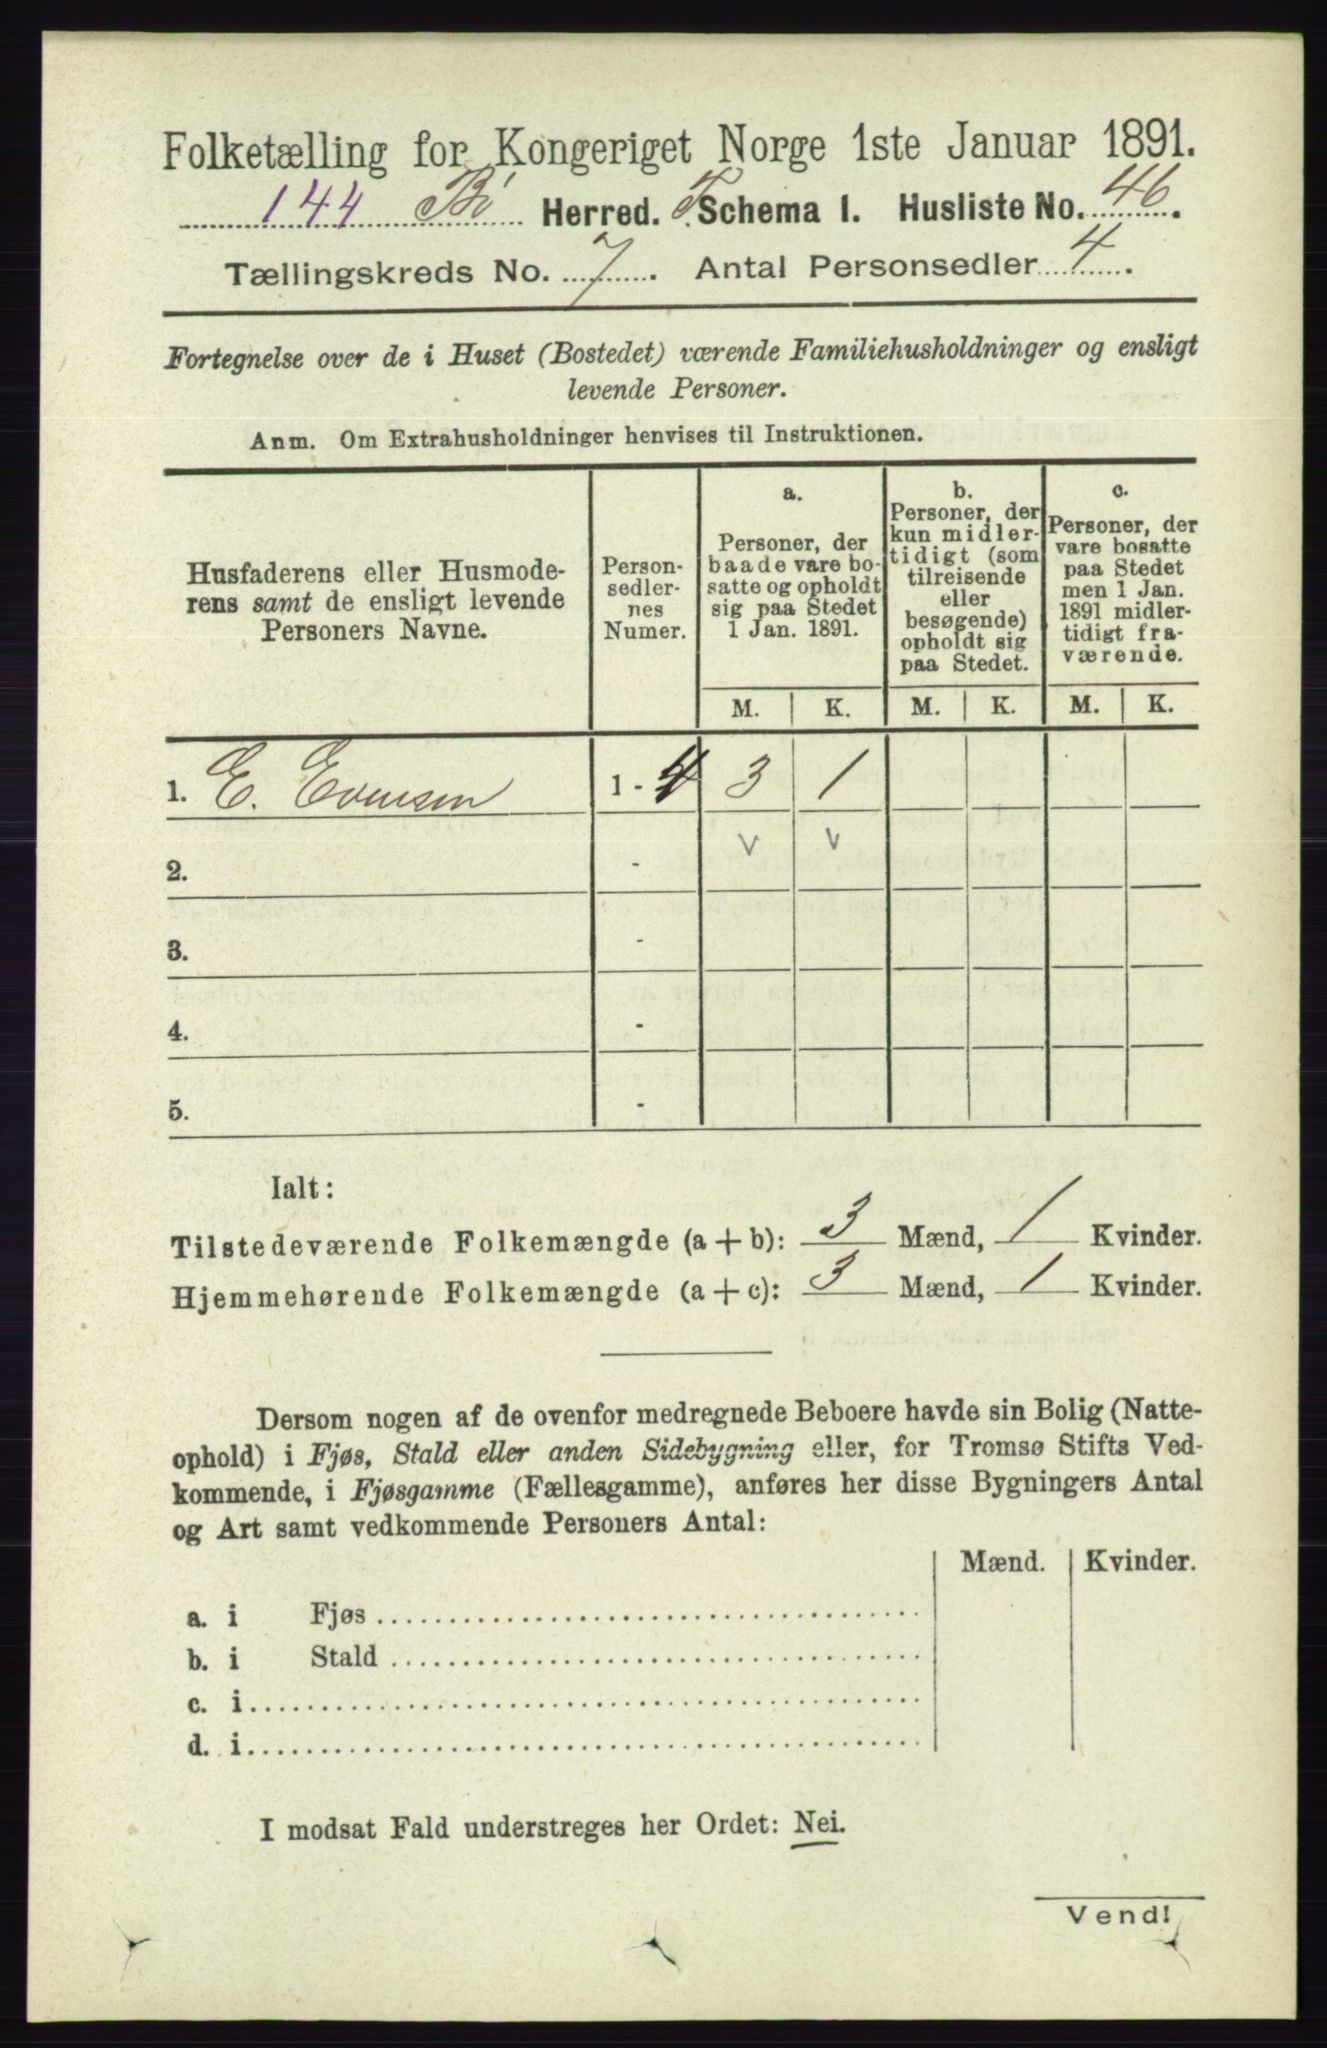 Folketælling for Kongeriget Norge 1ste Januar 1891.
144 Bø Herred. T. Schema I. Husliste No. 46.
Tællingskreds No. 7. Antal Personsedler 4.
Fortegnelse over de i Huset (Bostedet) værende Familiehusholdninger og ensligt
levende Personer.
Anm. Om Extrahusholdninger henvises til Instruktionen.
Husfaderens eller Husmode-
rens samt de ensligt levende
Personers Navne.
Person-
sedler-
nes
Numer.
a.
Personer, der
baade vare bo-
satte og opholdt
sig paa Stedet
1 Jan. 1891.
b.
Personer, der
kun midler-
tidigt (som
tilreisende
eller
besøgende)
opholdt sig
paa Stedet.
c.
Personer, der
vare bosatte
paa Stedet
men 1 Jan.
1891 midler-
tidigt fra-
værende.
M. K. M. K. M. K.
1. E. Evensen 1 - 4 3 1
2. - v v
3. -
4. -
5. -
Ialt:
Tilstedeværende Folkemængde (a + b): 3 Mænd, 1 Kvinder.
Hjemmehørende Folkemængde (a + c): 3 Mænd, 1 Kvinder.
Dersom nogen af de ovenfor medregnede Beboere havde sin Bolig (Natte-
ophold) i Fjøs, Stald eller anden Sidebygning eller, for Tromsø Stifts Ved-
kommende, i Fjøsgamme (Fællesgamme), anføres her disse Bygningers Antal
og Art samt vedkommende Personers Antal:
Mænd. Kvinder.
a. i Fjøs
b. i Stald
c. i
d. i
I modsat Fald understreges her Ordet: Nei.
Vend!